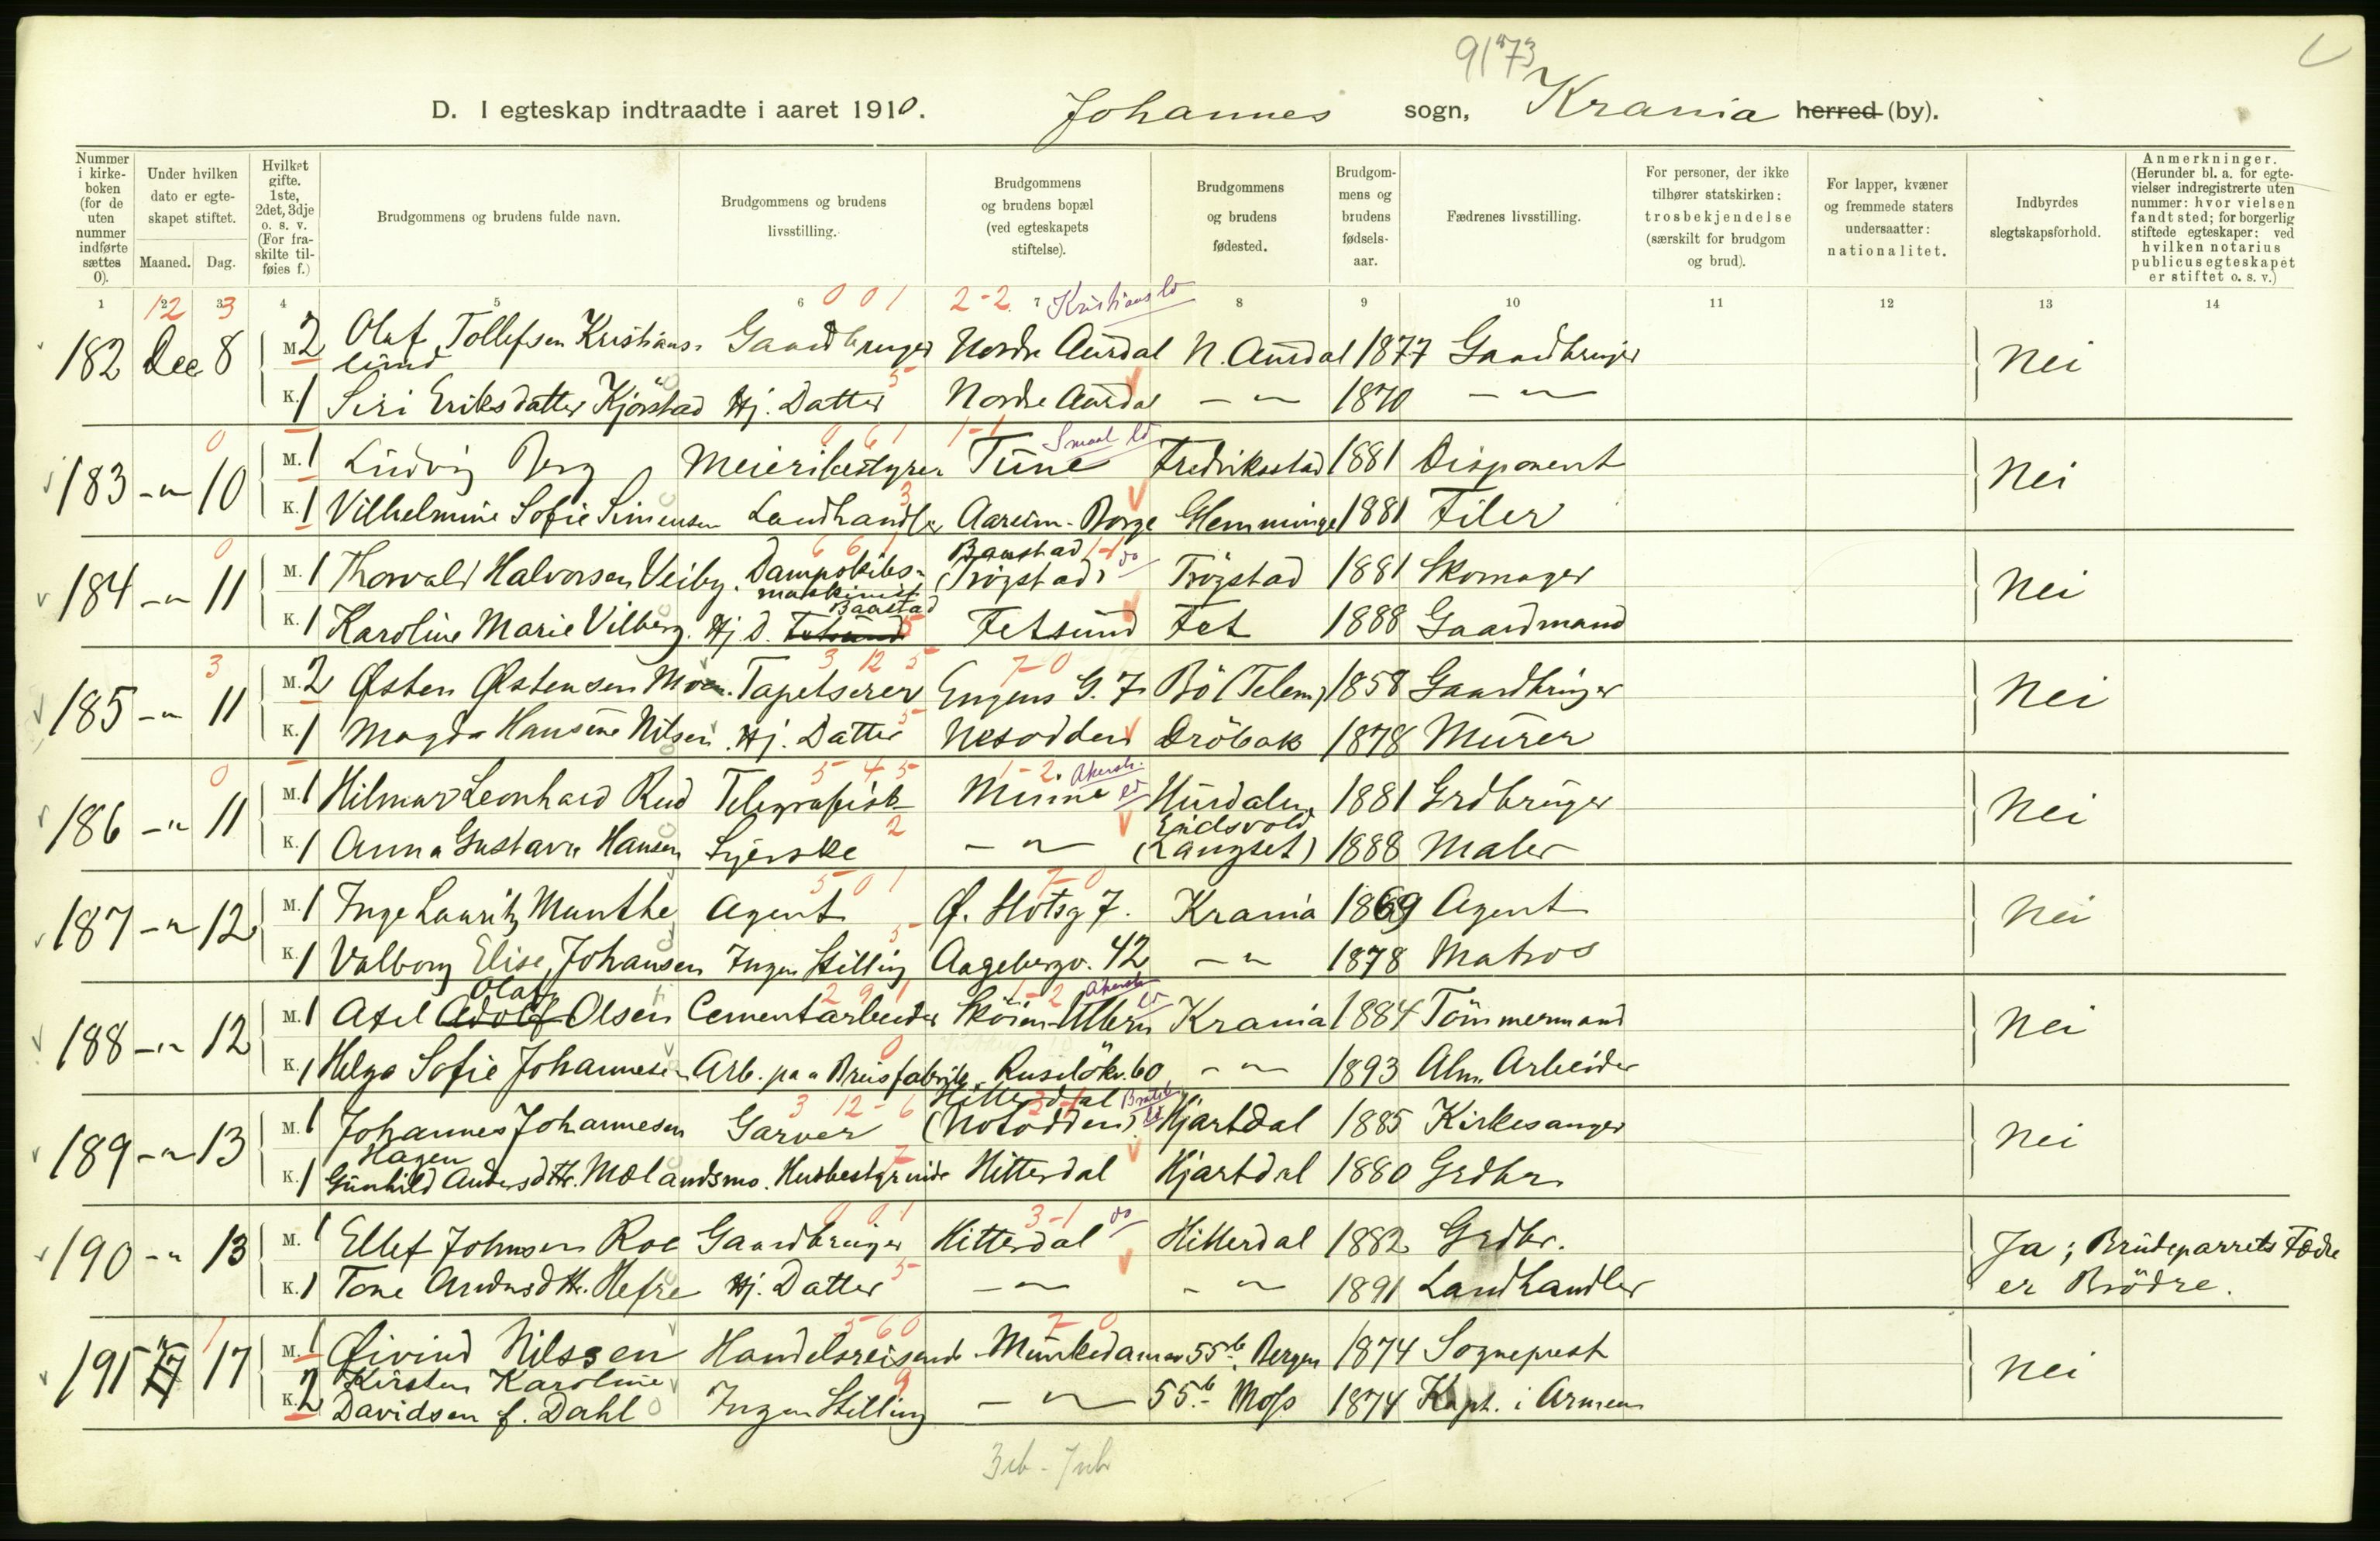 9173
D. I egteskap indtraadte i aaret 1910. Johannes sogn, Krania herred (by).
Nummer i kirkeboken (for de uten nummer indførte sættes 0).
Under hvilken dato er egteskapet stiftet.
Maaned. Dag.
Hvilket gifte. 1ste, 2det, 3dje o. s. v. (For fraskilte tilføies f.)
Brudgommens og brudens fulde navn.
Brudgommens og brudens livsstilling.
Brudgommens og brudens bopæl (ved egteskapets stiftelse).
Brudgommens og brudens fødested.
Brudgommens og brudens fødselsaar.
Fædrenes livsstilling.
For personer, der ikke tilhører statskirken: trosbekjendelse (særskilt for brudgom og brud).
For lapper, kvæner og fremmede staters undersaatter: nationalitet.
Indbyrdes slegtskapsforhold.
Anmerkninger. (Herunder bl. a. for egtevielser indregistrerte uten nummer: hvor vielsen fandt sted; for borgerlig stiftede egteskaper: ved hvilken notarius publicus egteskapet er stiftet o. s. v.)
1 2 3 4 5 6 7 8 9 10 11 12 13 14
12 3 0 0 1 2-2 Kristians ld
182 Dec 8 M. 2 Olaf Tollefsen Kristianslund Gaardbruger Nordre Aurdal N. Aurdal 1877 Gaardbruger Nei
K. 1 Siri Eriksdatter Kjørstad Hj. Datter 5 Nordre Aurdal -„- 1870 -„-
0 0 6 1 1-1 Smaal ld
183 -„- 10 M. 1 Ludvig Berg Meieribestyrer Tune Fredriksstad 1881 Disponent Nei
K. 1 Vilhelmine Sofie Simensen Landhandler 3 Aareum-Borge Glemminge 1881 Filer
0 6 6 1-1 do
184 -„- 11 M. 1 Thorvald Halvorsen Veiby. Dampskibsmaskinist Baastad (Trögstad) Trögstad 1881 Skomager Nei
K. 1 Karoline Marie Vilberg. Hj. D. Baastad Fetsund 5 Fetsund Fet 1888 Gaardmand
3 3 12 5 7-0
185 -„- 11 M. 2 Østen Østensen Moen. Tapetserer Eugens G. 7 Bö (Telem) 1858 Gaardbruger Nei
K. 1 Magda Hansine Nilsen. Hj. Datter 5 Nesodden Dröbak 1878 Murer
0 5 4 5 1-2 Akersh. ld
186 -„- 11 M. 1 Hilmar Leonhard Rud Telegrafist Minne Hurdalen 1881 Grdbruger Nei
K. 1 Anna Gustava Hansen Syerske 2 -„- Eidsvold (Langset) 1888 Maler
5 0 1 7-0
187 -„- 12 M. 1 Inge Lauritz Munthe Agent Ø. Slotsg 7. Krania 1869 Agent Nei
K. 1 Valborg Elise Johansen Ingen Stilling 5 Aagebergv. 42 -„- 1878 Matros
2 9 1 1-2 Akersh ld
188 -„- 12 M. 1 Axel Adolf Olaf Olsen Cementarbeider Sköien Ullern Krania 1884 Tömmermand Nei
K. 1 Helga Sofie Johannesen Arb. paa Preisfabrik 0 Ruselökv. 60 -„- 1893 Alm. Arbeider
3 12-6 3-1 Bratsb ld
189 -„- 13 M. 1 Johannes Johannesen Hagen Garver Hitterdal (Notodden) Hjartdal 1885 Kirkesanger Nei
K. 1 Gunhild Andersdtr. Molandsmo. Husbestyrinde 7 Hitterdal Hjartdal 1880 Grdbr.
0 0 1 3-1 do
190 -„- 13 M. 1 Ellef Johnsen Roe Gaardbruger Hitterdal Hitterdal 1882 Grdbr. Ja; Brudeparrets Fædre er Brödre.
K. 1 Tone Andersdtr. Hefre Hj. Datter 5 -„- -„- 1891 Landhandler
1 5 6 0 7-0
191 17 M. 1 Øivind Nilssen Handelsreisende Munkedamsv 55b. Bergen 1874 Sogneprest Nei
K. 2 Kirsten Karoline Davidsen f. Dahl Ingen Stilling 9 -„- 55b. Moss 1874 Kapt. i Armeen